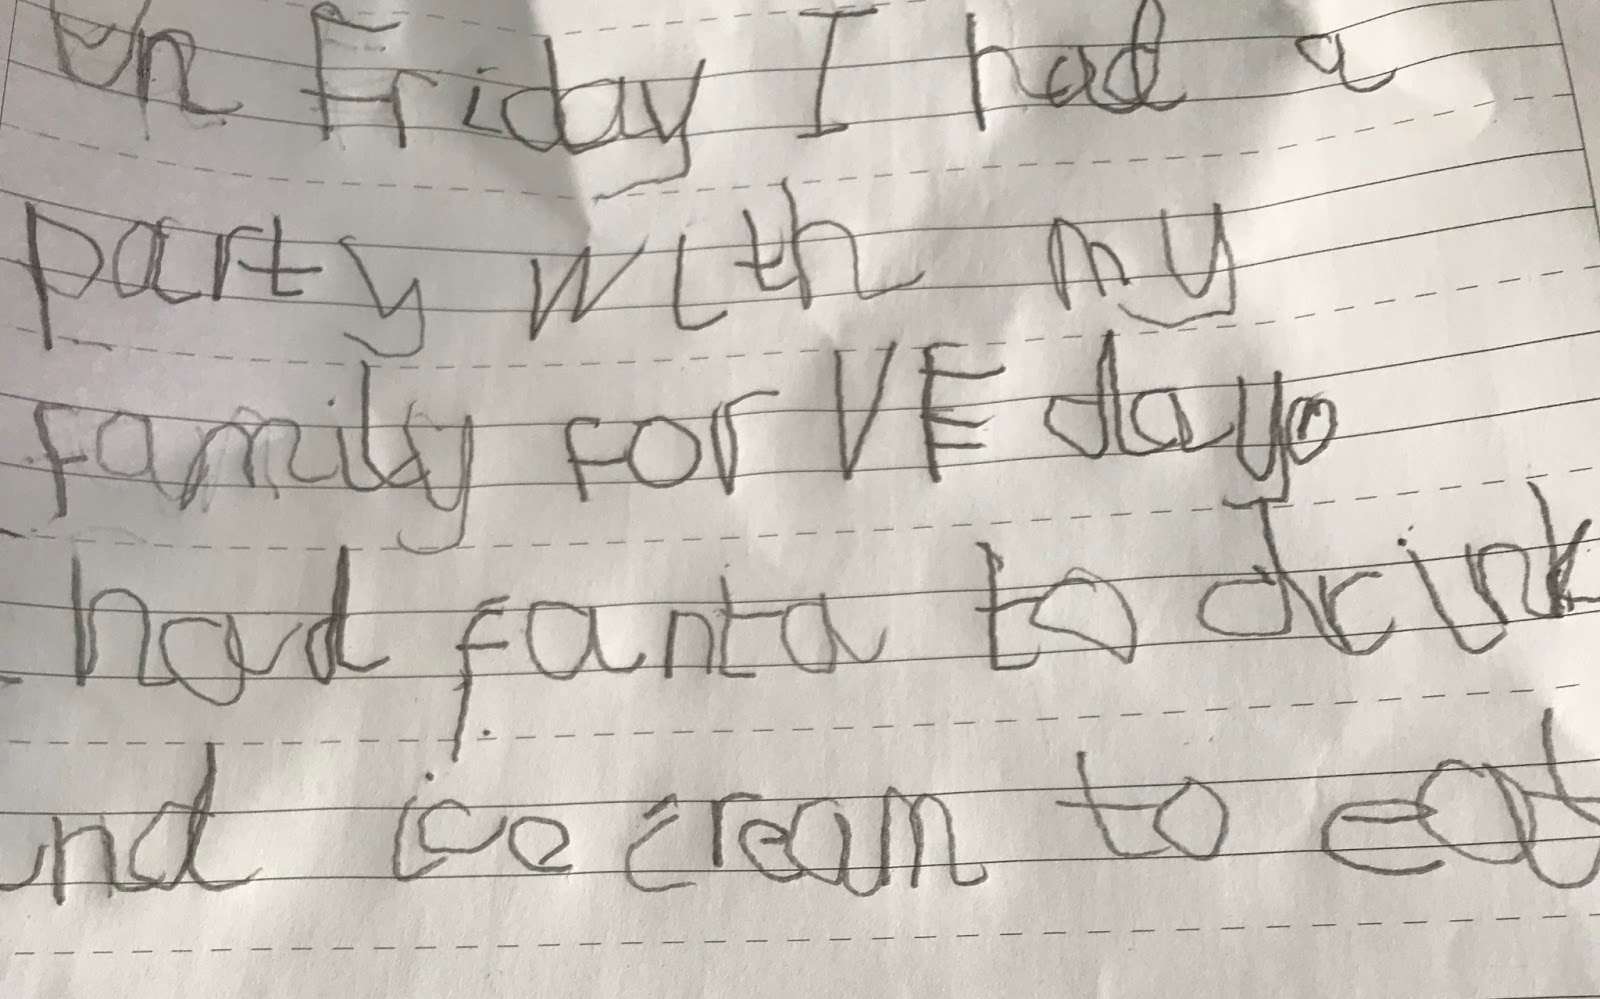 On Friday I had a
party with my
family for VE day.
had fanta to drink
and ice cream to eat